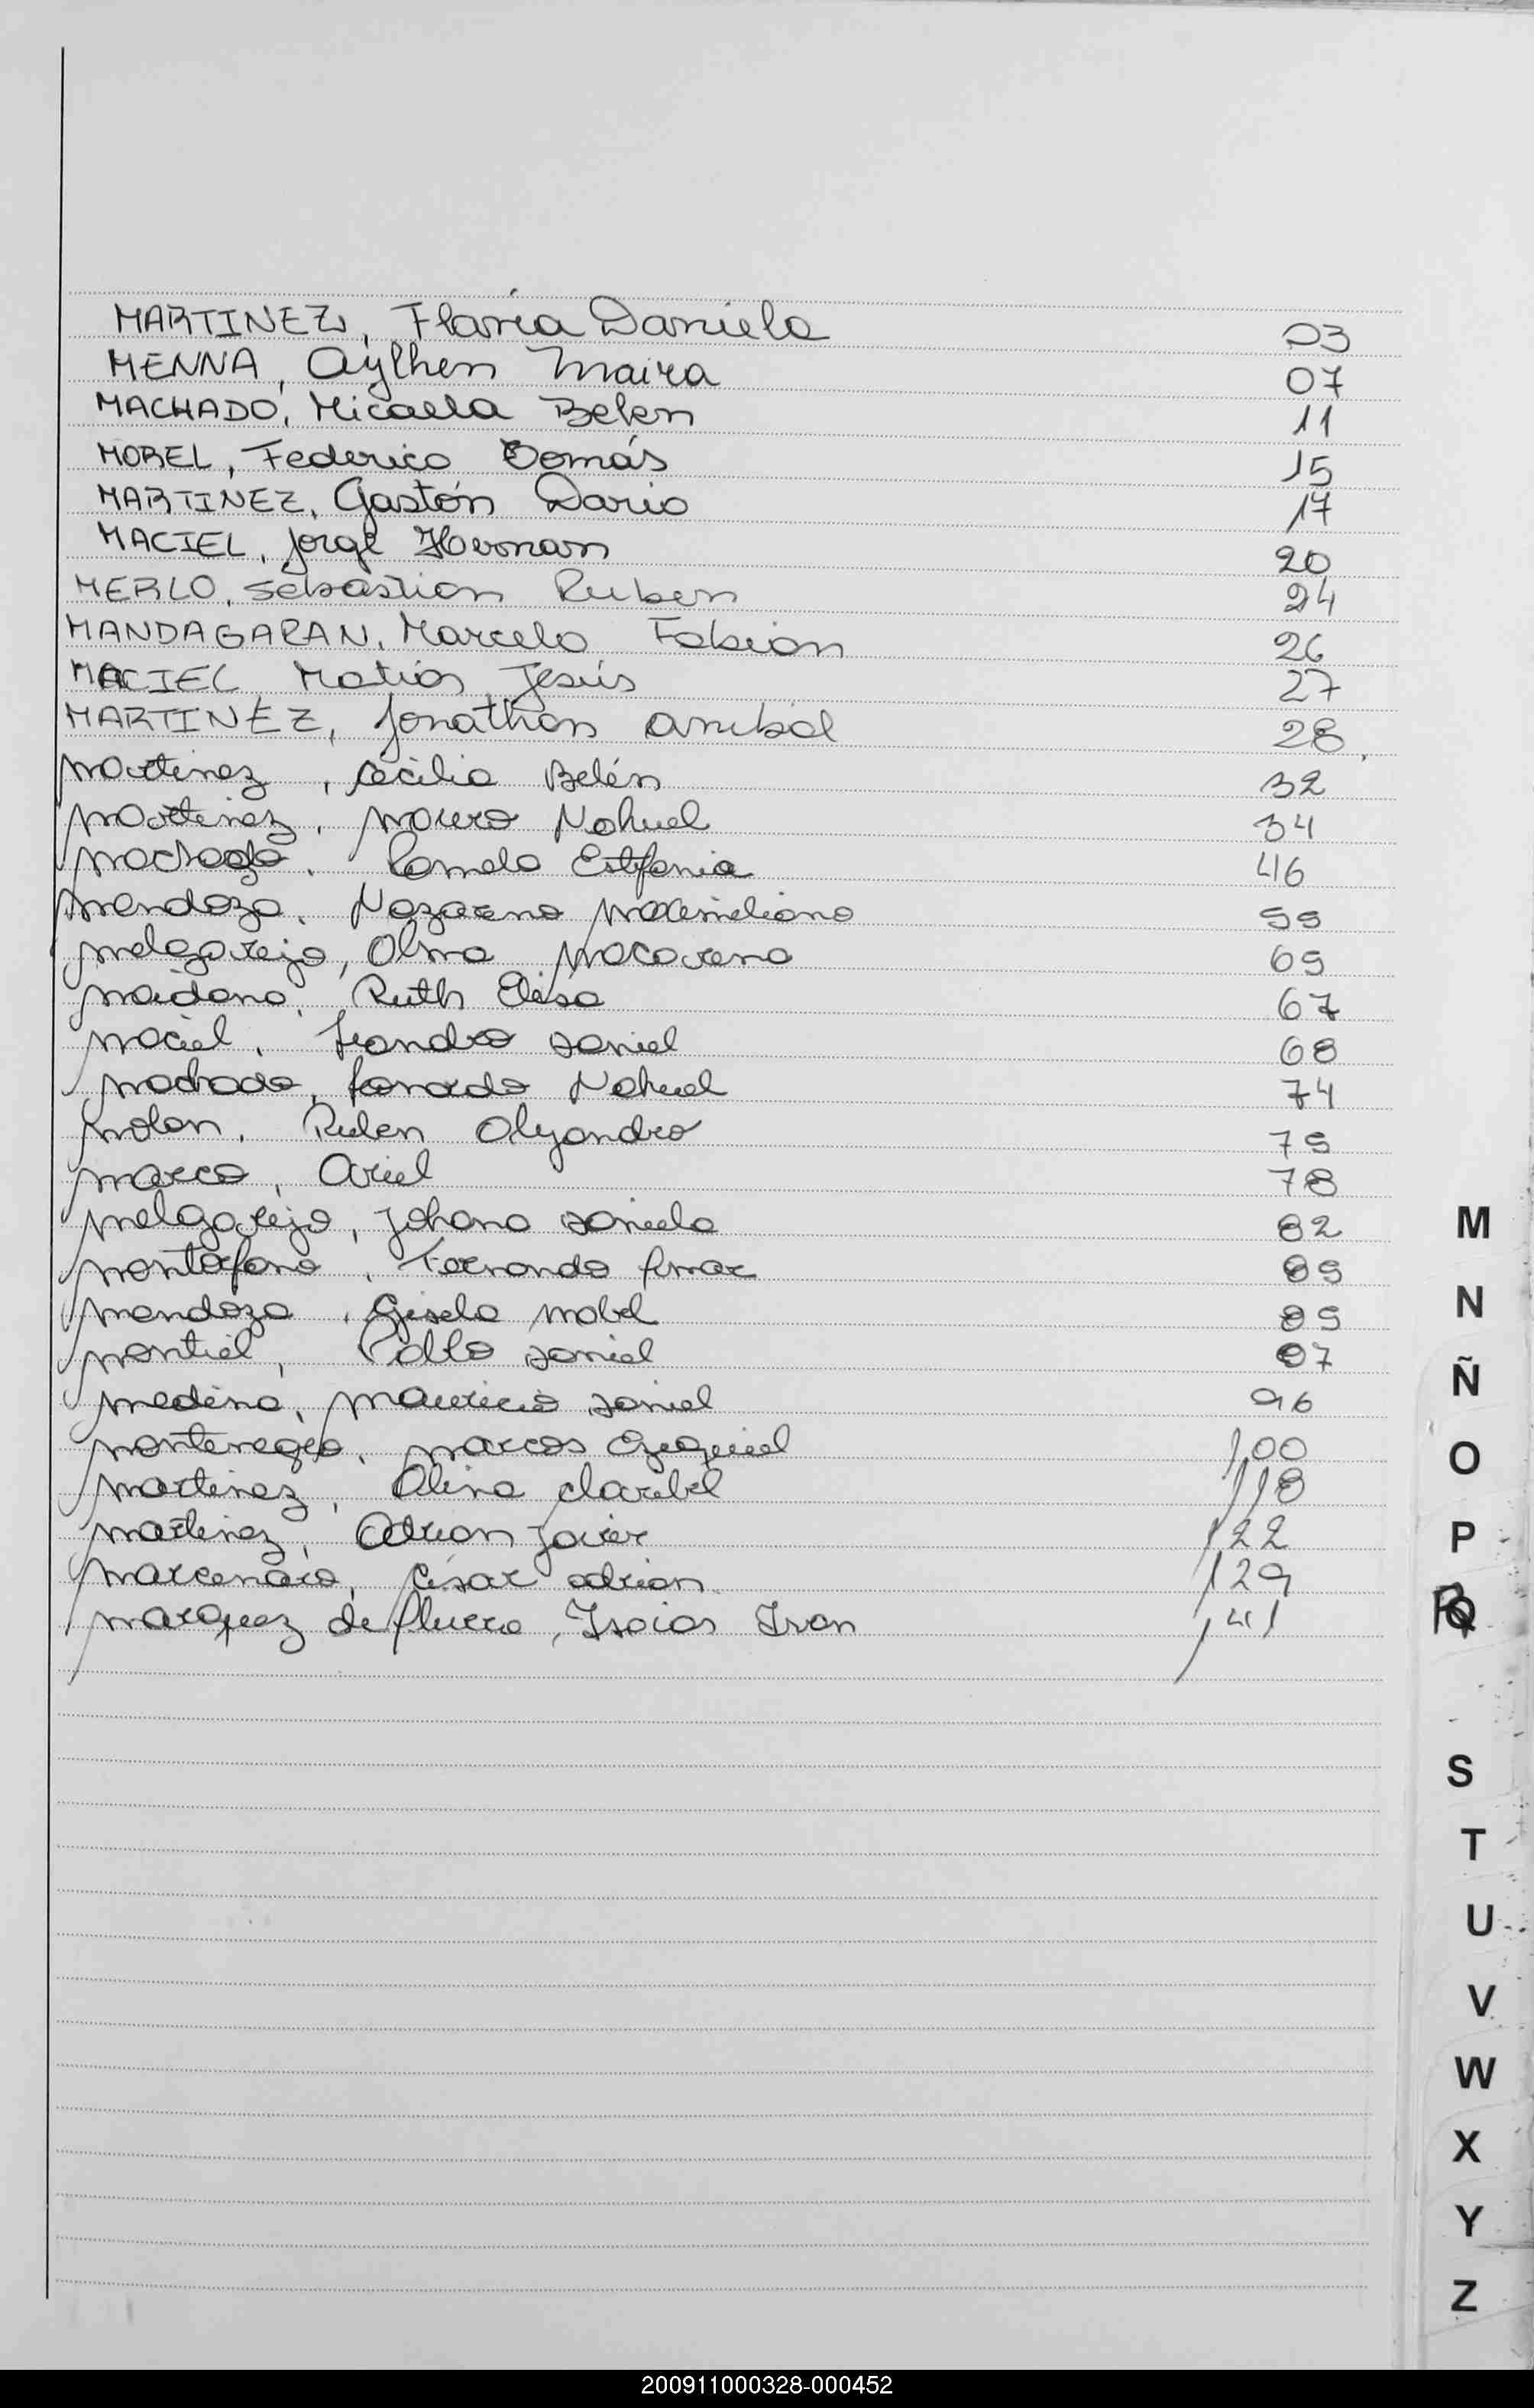 MARTINEZ, Flavia Daniela 03
MENNA, Aylhen Maira 07
MACHADO, Micaela Belen 11
MOREL, Federico Tomás 15
MARTINEZ, Gastón Dario 17
MACIEL, Jorge Hernan 20
MERLO, Sebastian Ruben 24
MANDAGARAN, Marcelo Fabian 26
MACIEL, Matias Jesús 27
MARTINEZ, Jonathan Anibal 28
Martinez, Cecilia Belén 32
Martinez, Mauro Nahuel 34
Machado, Pamela Estefania 46
Mendoza, Nazareno Maximiliano 55
Melgarejo, Alma Macarena 65
Maidana, Ruth Elisa 67
Maciel, Leandro Daniel 68
Machado, Nahuel 74
Molan, Ruben Alejandro 75
Marco, Ariel 78
Melgarejo, Johana Daniela 82
Fernando Omar 85
Mendoza, Gisela Mabel 85
Montiel, Pablo Daniel 87
Medina, Mauricio Daniel 96
Montenegro, Marcos Ezequiel 100
Martinez, Alina Claribel 118
Martinez, Adrian Javier 122
Marcenaro, César Adrian 129
Marquez de Isaias Ivan 141
M
N
Ñ
O
P
S
T
U
V
W
X
Y
Z
200911000328-000452